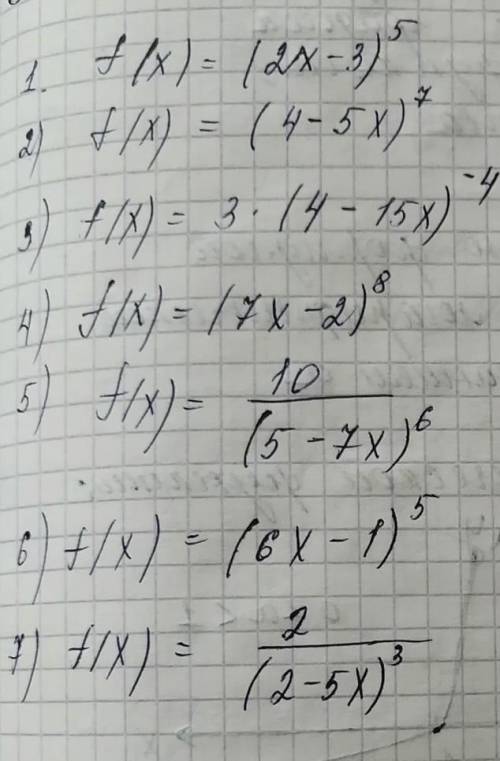 1. f(x) = (2x-3)^5
2) f(x) = (4-5x)^7
3) f(x) = 3·(4-15x)^-4
4) f(x) = (7x-2)^8
5) f(x) = 10/(5-7x)^6
6) f(x) = (6x-1)^5
7) f(x) = 2/(2-5x)^3